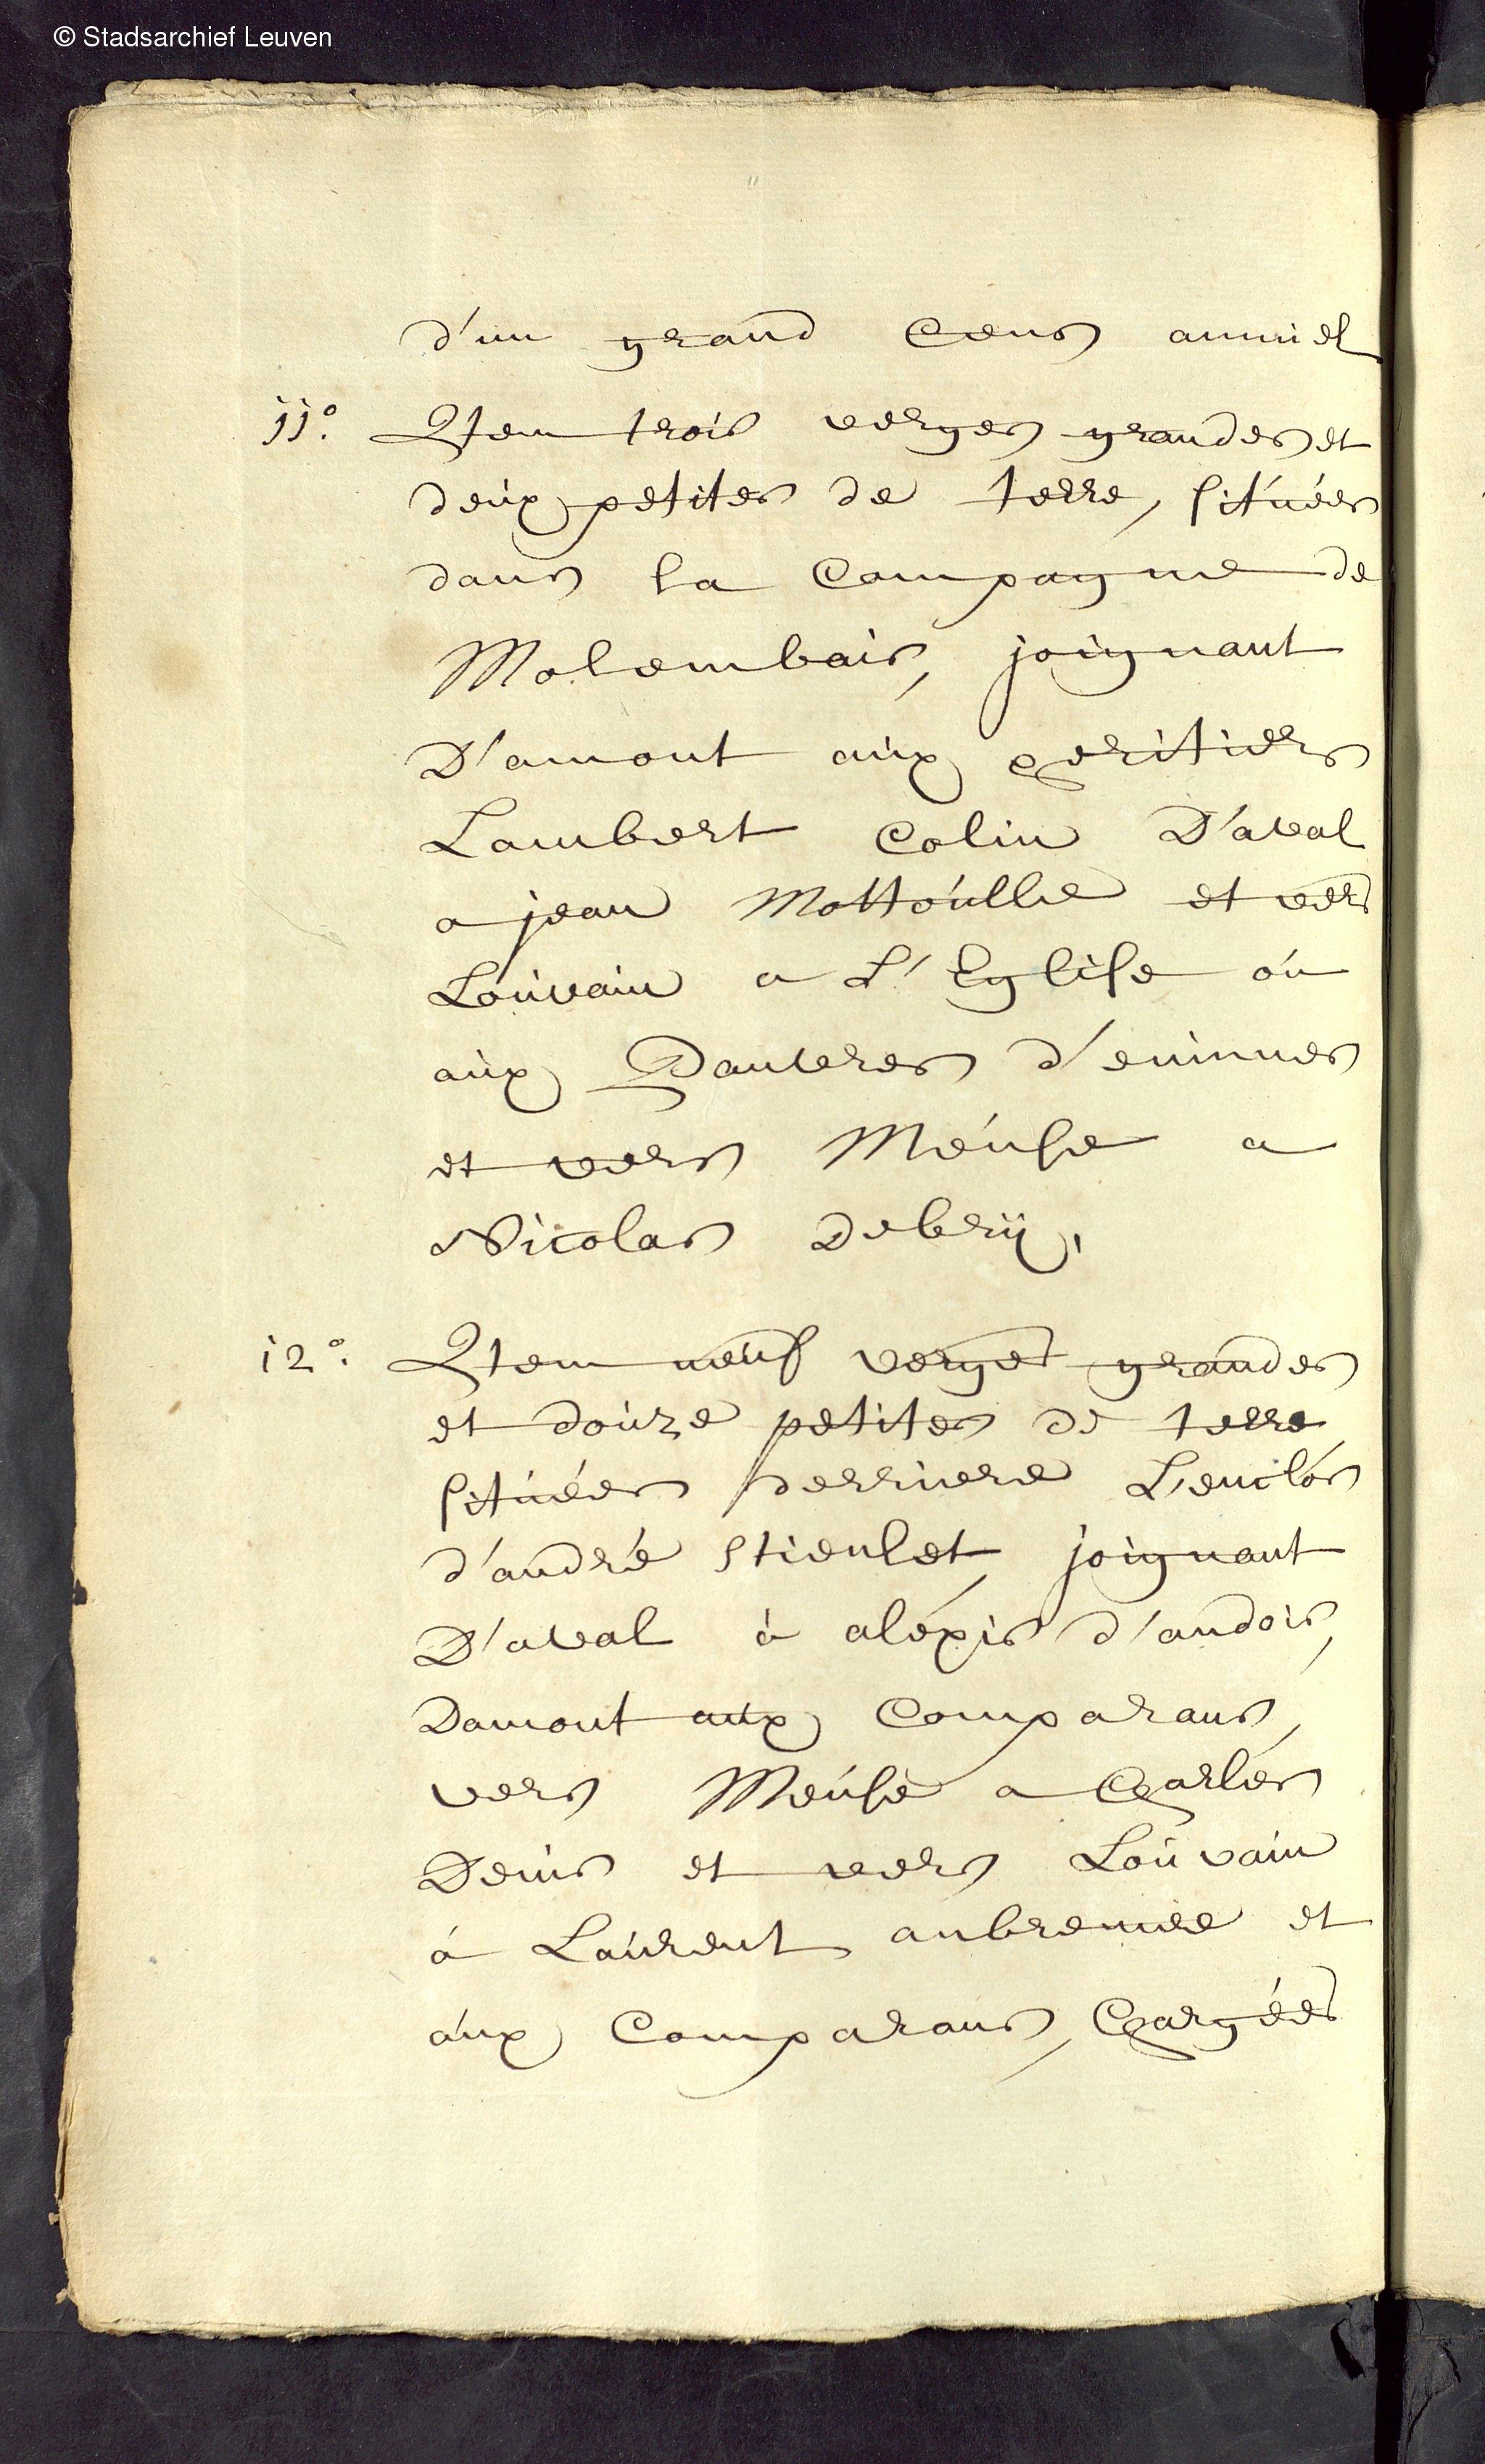 © Stadsarchief Leuven
d'un grand Cens annuel
11° Item trois verges grandes et
deux petites de terre, situées
dans la Campagne de
Molembais, joignant
D'amont aux heritiers
Lambert Colin D'aval
a jean Mottoulle et vers
Louvain a L'Eglise ou
aux Pauvres d'enines
et vers Meuse a
Nicolas Debrÿ,
12° Item neuf verges grandes
et douze petites de terre
situées derriere L'enclos
d'andré Stienlet, joignant
D'aval à alexis d'andois,
Damont aux Comparans,
vers Meuse a Charles
Denis et vers Louvain
à Laurent aubremée et
aux Comparans, Chargées